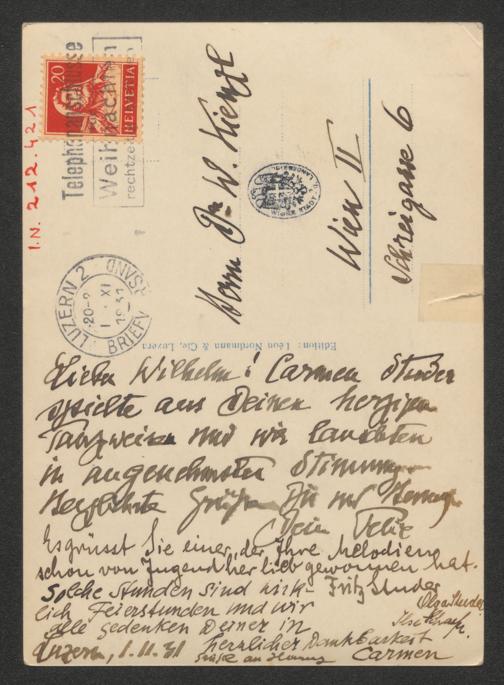 I.N. 212.421
20
HELVETIA
Telephonanschlüsse
Weihnachten
rechtzei
LUZERN 2
BRIEFVERSAND
1. XI
1931
20-2
Herrn Dr. W. Kienzl
Wien II
Schreigasse 6
WIENER STADT
Edition: Léon Nordmann & Cie, Luzern
Lieber Wilhelm! Carmen Studer
spielte aus Deinen herzigen
Tanzweisen und wir lauschten
in angenehmster Stimmung
Herzlichste Grüße Dir und Henny
Dein Felix
Es grüsst Sie einer, der Ihre Melodien
schon von Jugend her lieb gewonnen hat.
Fritz Studer
Solche Stunden sind wirk-
lich Feierstunden und wir
alle gedenken Deiner in
herzlicher Dankbarkeit
Luzern, 1.11.31
Grüße an Henny
Carmen
Olga Studer